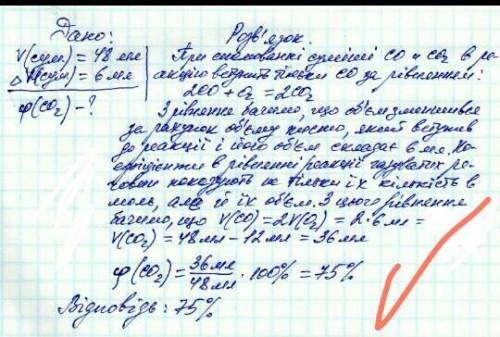 Дано:
V(сум) = 48 мл
△V(сум) = 6 мл
φ(CO₂) - ?
Розв'язок.
При спалюванні суміші CO и CO₂ в ре-
акцію вступить тільки CO за рівнянням:
2CO + O₂ = 2CO₂
З рівняння бачимо, що об'єм зменшився
за рахунок об'єму кисню, який вступив
до реакції і його об'єм складає 6 мл. Ко-
ефіцієнти в рівнянні реакції газуватих ре-
човин показують не тільки їх кількість в
моль, але й їх об'єм. З цього рівняння
бачимо, що V(CO) = 2V(O₂) = 2·6 мл =
V(CO₂) = 48 мл - 12 мл = 36 мл
φ(CO₂) = 36 мл / 48 мл · 100% = 75%
Відповідь: 75%